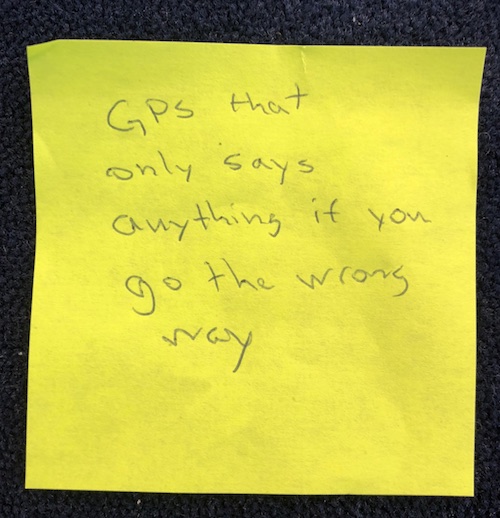 GPS that
only says
anything if you
go the wrong
way